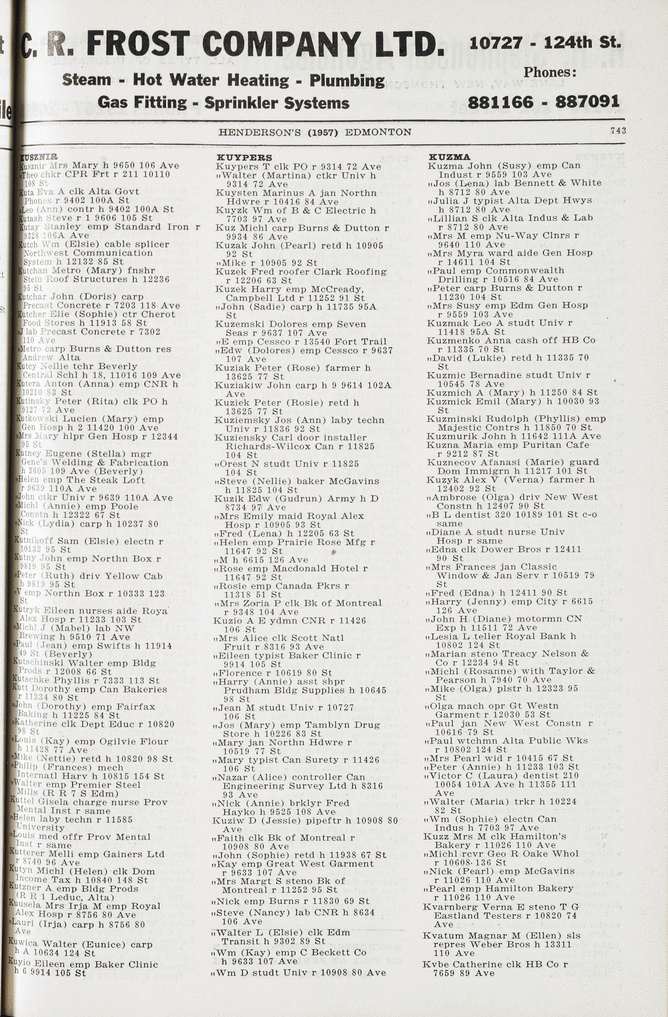 C. R. FROST COMPANY LTD.
10727 - 124th St.
Steam - Hot Water Heating - Plumbing
Gas Fitting - Sprinkler Systems
Phones:
881166 - 887091
HENDERSON'S (1957) EDMONTON
743
KUSZNIR
Kusznir Mrs Mary h 9650 106 Ave
"Theo chkr CPR Frt r 211 10110
108 St
Kuta Eva A clk Alta Govt
Phones r 9402 100A St
"Leo (Ann) contr h 9402 100A St
Kutash Steve r 1 9606 105 St
Kutay Stanley emp Standard Iron r
9328 106A Ave
Kutch Wm (Elsie) cable splicer
Northwest Communication
System h 12132 85 St
Kutchan Metro (Mary) fnshr
Stein Roof Structures h 12236
95 St
Kutchar John (Doris) carp
Precast Concrete r 7203 118 Ave
Kutcher Elie (Sophie) ctr Cherot
Food Stores h 11913 58 St
"J lab Precast Concrete r 7302
119 Ave
"Metro carp Burns & Dutton res
Andrew Alta
Kutey Nellie tchr Beverly
Central Schl h 18, 11016 109 Ave
Kutera Anton (Anna) emp CNR h
10210 83 St
Kutinsky Peter (Rita) clk PO h
9127 72 Ave
Kutkowski Lucien (Mary) emp
Gen Hosp h 2 11420 100 Ave
"Mrs Mary hlpr Gen Hosp r 12344
95 St
Kutney Eugene (Stella) mgr
Gene's Welding & Fabrication
h 3605 109 Ave (Beverly)
"Helen emp The Steak Loft
r 9639 110A Ave
"John ctkr Univ r 9639 110A Ave
"Michl (Annie) emp Poole
Constn h 12322 67 St
"Nick (Lydia) carp h 10237 80
St
Kutnikoff Sam (Elsie) electn r
10132 95 St
Kutny John emp Northn Box r
9819 95 St
"Peter (Ruth) driv Yellow Cab
h 9819 95 St
"V emp Northn Box r 10333 123
St
Kutryk Eileen nurses aide Roya
Alex Hosp r 11233 103 St
"Michl J (Mabel) lab NW
Brewing h 9510 71 Ave
"Paul (Jean) emp Swifts h 11914
49 St (Beverly)
Kutschinski Walter emp Bldg
Prods r 12008 66 St
Kutschke Phyllis r 7333 113 St
Kutt Dorothy emp Can Bakeries
r 11334 80 St
"John (Dorothy) emp Fairfax
Baking h 11225 84 St
"Katherine clk Dept Educ r 10820
98 St
"Louis (Kay) emp Ogilvie Flour
h 11428 77 Ave
"Mike (Nettie) retd h 10820 98 St
"Philip (Frances) mech
Internatl Harv h 10815 154 St
"Walter emp Premier Steel
Mills (R R 7 S Edm)
Kuttel Gisela charge nurse Prov
Mental Inst r same
"Helen laby techn r 11585
University
"Louis med offr Prov Mental
Inst r same
Kutterer Melli emp Gainers Ltd
r 8740 96 Ave
Kutyn Michl (Helen) clk Dom
Income Tax h 10840 148 St
Kutzner A emp Bldg Prods
(R R 1 Leduc, Alta)
Kuusela Mrs Irja M emp Royal
Alex Hosp r 8756 80 Ave
"Lauri (Irja) carp h 8756 80
Ave
Kuwica Walter (Eunice) carp
h A 10634 124 St
Kuyio Eileen emp Baker Clinic
h 6 9914 105 St
KUYPERS
Kuypers T clk PO r 9314 72 Ave
"Walter (Martina) ctkr Univ h
9314 72 Ave
Kuysten Marinus A jan Northn
Hdwre r 10416 84 Ave
Kuyzk Wm of B & C Electric h
7703 97 Ave
Kuz Michl carp Burns & Dutton r
9934 86 Ave
Kuzak John (Pearl) retd h 10905
92 St
"Mike r 10905 92 St
Kuzek Fred roofer Clark Roofing
r 12206 63 St
Kuzek Harry emp McCready,
Campbell Ltd r 11252 91 St
"John (Sadie) carp h 11735 95A
St
Kuzemski Dolores emp Seven
Seas r 9637 107 Ave
"E emp Cessco r 13540 Fort Trail
"Edw (Dolores) emp Cessco r 9637
107 Ave
Kuziak Peter (Rose) farmer h
13625 77 St
Kuziakiw John carp h 9 9614 102A
Ave
Kuziek Peter (Rosie) retd h
13625 77 St
Kuziemsky Jos (Ann) laby techn
Univ r 11836 92 St
Kuziensky Carl door installer
Richards-Wilcox Can r 11825
104 St
"Orest N studt Univ r 11825
104 St
"Steve (Nellie) baker McGavins
h 11825 104 St
Kuzik Edw (Gudrun) Army h D
8734 97 Ave
"Mrs Emily maid Royal Alex
Hosp r 10905 93 St
"Fred (Lena) h 12205 63 St
"Helen emp Prairie Rose Mfg r
11647 92 St
"M h 6615 126 Ave
"Rose emp Macdonald Hotel r
11647 92 St
"Rosie emp Canada Pkrs r
11318 51 St
"Mrs Zoria P clk Bk of Montreal
r 9348 104 Ave
Kuzio A E ydmn CNR r 11426
106 St
"Mrs Alice clk Scott Natl
Fruit r 8316 93 Ave
"Eileen typist Baker Clinic r
9914 105 St
"Florence r 10619 80 St
"Harry (Annie) asst shpr
Prudham Bldg Supplies h 10645
98 St
"Jean M studt Univ r 10727
106 St
"Jos (Mary) emp Tamblyn Drug
Store h 10226 83 St
"Mary jan Northn Hdwre r
10519 77 St
"Mary typist Can Surety r 11426
106 St
"Nazar (Alice) controller Can
Engineering Survey Ltd h 8316
93 Ave
"Nick (Annie) brklyr Fred
Hayko h 9525 108 Ave
Kuziw D (Jessie) pipeftr h 10908 80
Ave
"Faith clk Bk of Montreal r
10908 80 Ave
"John (Sophie) retd h 11938 67 St
"Kay emp Great West Garment
r 9633 107 Ave
"Mrs Margt S steno Bk of
Montreal r 11252 95 St
"Nick emp Burns r 11830 69 St
"Steve (Nancy) lab CNR h 8634
106 Ave
"Walter L (Elsie) clk Edm
Transit h 9302 89 St
"Wm (Kay) emp C Beckett Co
h 9633 107 Ave
"Wm D studt Univ r 10908 80 Ave
KUZMA
Kuzma John (Susy) emp Can
Indust r 9559 103 Ave
"Jos (Lena) lab Bennett & White
h 8712 80 Ave
"Julia J typist Alta Dept Hwys
h 8712 80 Ave
"Lillian S clk Alta Indus & Lab
r 8712 80 Ave
"Mrs M emp Nu-Way Clnrs r
9640 110 Ave
"Mrs Myra ward aide Gen Hosp
r 14611 104 St
"Paul emp Commonwealth
Drilling r 10516 84 Ave
"Peter carp Burns & Dutton r
11230 104 St
"Mrs Susy emp Edm Gen Hosp
r 9559 103 Ave
Kuzmak Leo A studt Univ r
11418 95A St
Kuzmenko Anna cash off HB Co
r 11335 70 St
"David (Lukie) retd h 11335 70
St
Kuzmic Bernadine studt Univ r
10545 78 Ave
Kuzmich A (Mary) h 11250 84 St
Kuzmick Emil (Mary) h 10030 93
St
Kuzminski Rudolph (Phyllis) emp
Majestic Contrs h 11850 70 St
Kuzmurik John h 11642 111A Ave
Kuzna Maria emp Puritan Cafe
r 9212 87 St
Kuznecov Afanasi (Marie) guard
Dom Immigrn h 11217 101 St
Kuzyk Alex V (Verna) farmer h
12402 92 St
"Ambrose (Olga) driv New West
Constn h 12407 90 St
"B L dentist 320 10189 101 St c-o
same
"Diane A studt nurse Univ
Hosp r same
"Edna clk Dower Bros r 12411
90 St
"Mrs Frances jan Classic
Window & Jan Serv r 10519 79
St
"Fred (Edna) h 12411 90 St
"Harry (Jenny) emp City r 6615
126 Ave
"John H (Diane) motormn CN
Exp h 11511 72 Ave
"Lesia L teller Royal Bank h
10802 124 St
"Marian steno Treacy Nelson &
Co r 12234 94 St
"Michl (Rosanne) with Taylor &
Pearson h 7940 70 Ave
"Mike (Olga) plstr h 12323 95
St
"Olga mach opr Gt Westn
Garment r 12030 53 St
"Paul jan New West Constn r
10616 79 St
"Paul wtchmn Alta Public Wks
r 10802 124 St
"Mrs Pearl wid r 10415 67 St
"Peter (Annie) h 11233 103 St
"Victor C (Laura) dentist 210
10054 101A Ave h 11355 111
Ave
"Walter (Maria) trkr h 10224
82 St
"Wm (Sophie) electn Can
Indus h 7703 97 Ave
Kuzz Mrs M clk Hamilton's
Bakery r 11026 110 Ave
"Michl rcvr Geo R Oake Whol
r 10608 136 St
"Nick (Pearl) emp McGavins
r 11026 110 Ave
"Pearl emp Hamilton Bakery
r 11026 110 Ave
Kvarnberg Verna E steno T G
Eastland Testers r 10820 74
Ave
Kvatum Magnar M (Ellen) sls
repres Weber Bros h 13311
110 Ave
Kvbe Catherine clk HB Co r
7659 89 Ave